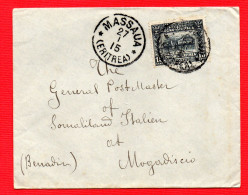 MASSAUA
27
1
15
(ERITREA)
The
General Post Master
of
Somaliland Italien
at
(Benadir) Mogadiscio